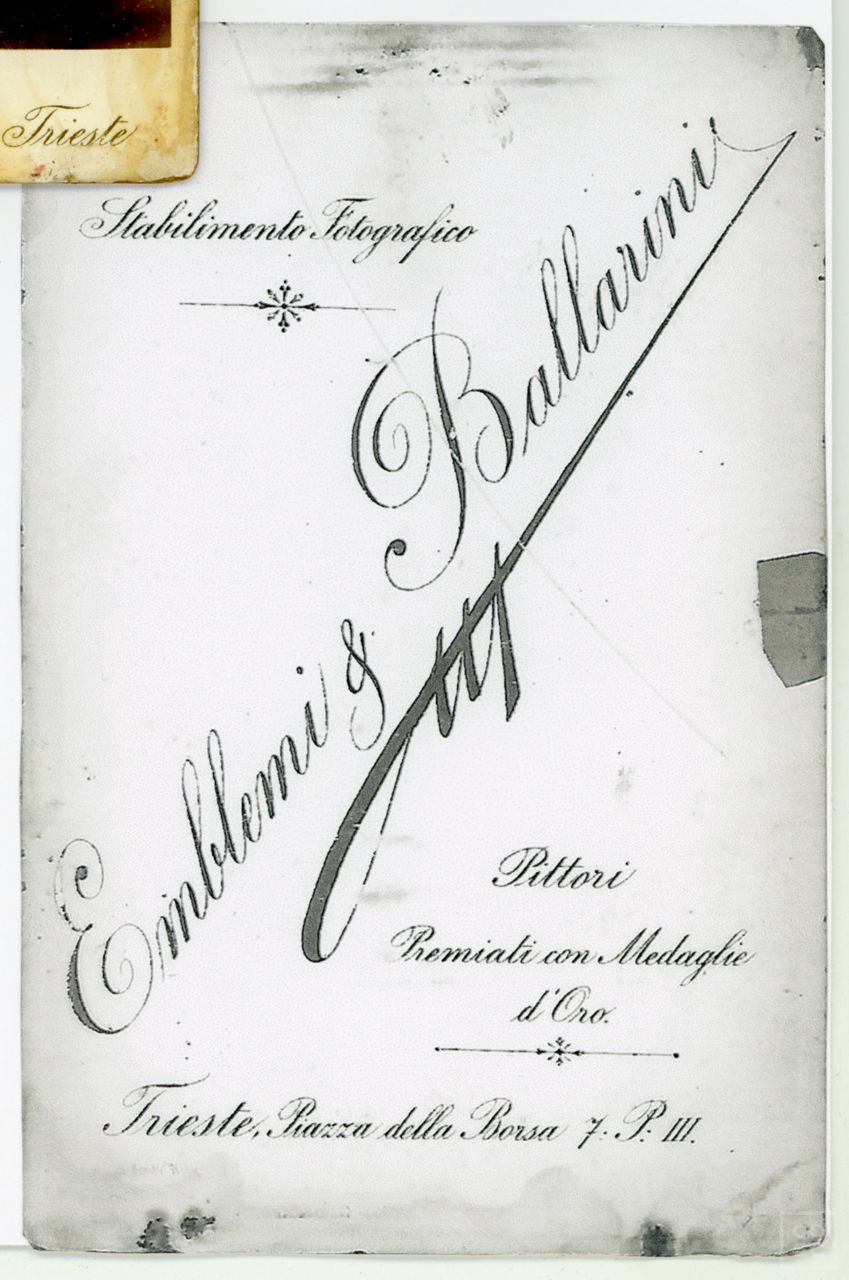 Trieste
Stabilimento Fotografico
Emblemi & Ballarini
Pittori
Premiati con Medaglie
d'Oro.
Trieste, Piazza della Borsa 7: P: III.